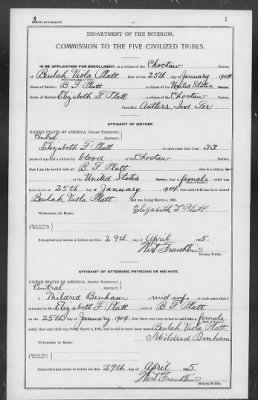 DEPARTMENT OF THE INTERIOR,
COMMISSION TO THE FIVE CIVILIZED TRIBES.
IN RE APPLICATION FOR ENROLLMENT, as a citizen of the Choctaw Nation,
Beulah Viola Platt, born on the 25th day of January, 1904
Name of Father: B F Platt a citizen of the United States
Name of Mother: Elizabeth F Platt a citizen of the Choctaw Nation.
Postoffice Antlers, Ind Ter
AFFIDAVIT OF MOTHER.
UNITED STATES OF AMERICA, INDIAN TERRITORY,
Central District.
I, Elizabeth F Platt, on oath state that I am 33
years of age and a citizen by blood, of the Choctaw Nation;
that I am the lawful wife of B. F. Platt, who is a citizen
of the United States that a female child was
born to me on 25th day of January, 1904, that said child has been named
Beulah Viola Platt, and was living March 4, 1905.
Elizabeth F Platt
WITNESSES TO MARK:
Subscribed and sworn to before me this 29th day of April, 1905.
Wirt Franklin
Notary Public.
AFFIDAVIT OF ATTENDING PHYSICIAN OR MIDWIFE.
UNITED STATES OF AMERICA, INDIAN TERRITORY,
Central District.
I, Mildred Benham, a midwife, on oath state that I
attended on Mrs. Elizabeth F Platt, wife of B. F. Platt
on the 25th day of January, 1904, that there was born to her on said date a female
child; that said child was living March 4, 1905, and is said to have been named Beulah Viola Platt
Mildred Benham
WITNESSES TO MARK:
Subscribed and sworn to before me this 29th day of April, 1905.
Wirt Franklin
Notary Public.